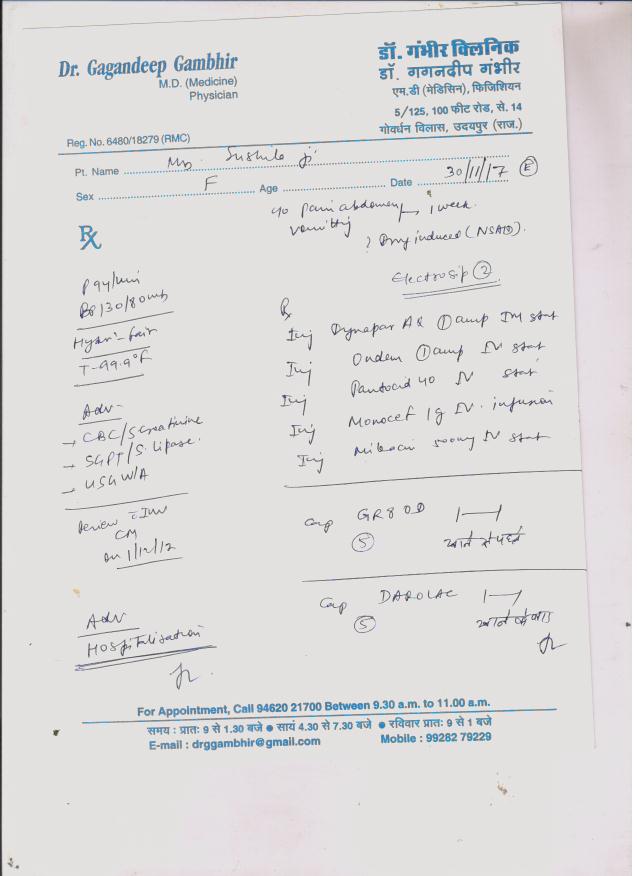 Dr. Gagandeep Gambhir
M.D. (Medicine)
Physician
Reg. No. 6480/18279 (RMC)
डॉ. गंभीर क्लिनिक
डॉ. गगनदीप गंभीर
एम.डी (मेडिसिन), फिजिशियन
5/125, 100 फीट रोड, से. 14
गोवर्धन विलास, उदयपुर (राज.)
Pt. Name Sushila ji
Sex F Age Date 30/11/17 E
Pain abdomen 1 week
vomitting
? Drug induced (NSAID).
Rx
P 94/min
BP 130/80
Hydrn - fair
T-99.9°F
Adv
→ CBC/S Creatinine
→ SGPT/S. lipase.
→ USG W/A
Review
on 1/12/17
Adv
HOSpitalisation
Electrosip 2
Rx
Inj Dynapar AQ 1 amp IM stat
Inj Ondem 1 amp IV stat
Inj Pantocid 40 IV stat
Inj Monocef 1g IV. infusion
Inj Mikacin 500mg IV stat
Cap GR8 OD 1—1
5 खाने से पहले
Cap DAROLAC 1—1
5 खाने के बाद
For Appointment, Call 94620 21700 Between 9.30 a.m. to 11.00 a.m.
समय : प्रातः 9 से 1.30 बजे ● सायं 4.30 से 7.30 बजे ● रविवार प्रातः 9 से 1 बजे
E-mail : drggambhir@gmail.com Mobile : 99282 79229